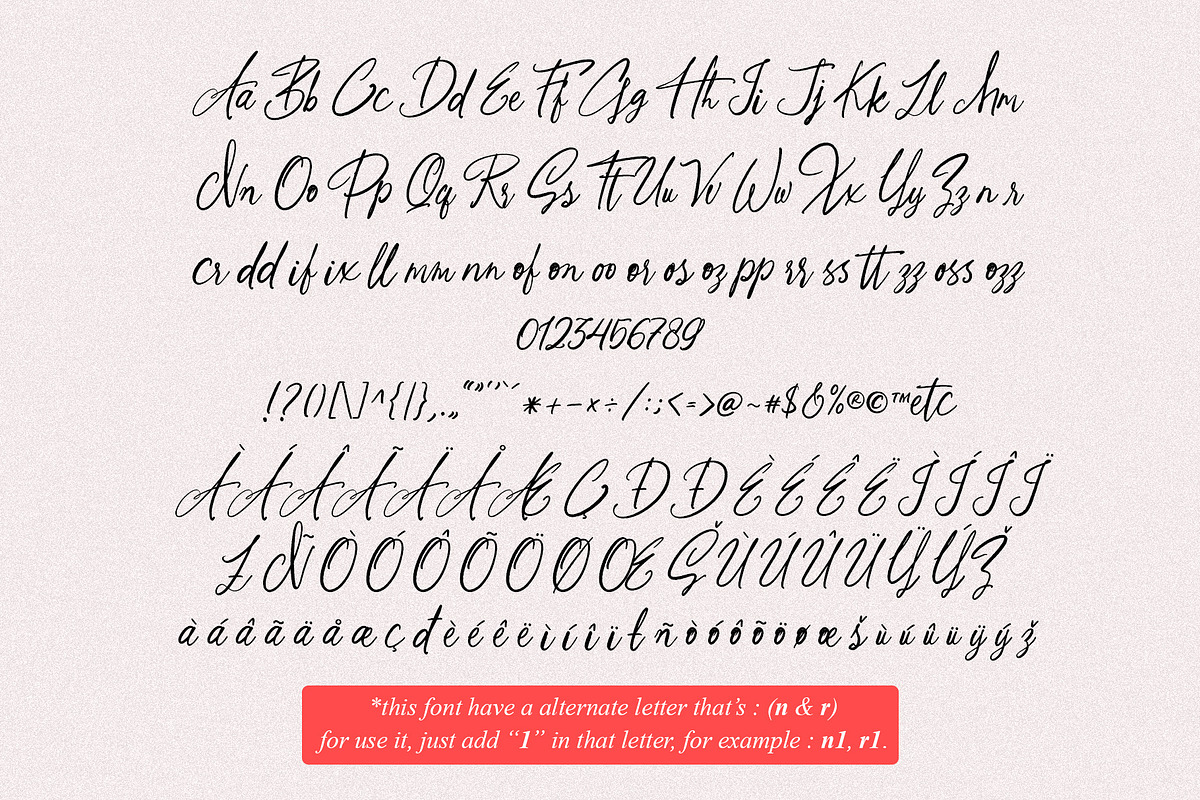 Aa Bb Cc Dd Ee Ff Gg Hh Ii Jj Kk Ll Mm
Nn Oo Pp Qq Rr Ss Tt Uu Vv Ww Xx Yy Zz n r
cr dd if ix ll mm nn of on oo or os oz pp rr ss tt zz oss ozz
0123456789
!?()[\]^{|},.„“”‘’´`*+-×÷/:;<=>@~#$&%®©™etc
ÀÁÂÃÄÅÆÇĐÐÈÉÊËÌÍÎÏ
ŁÑÒÓÔÕÖØŒŠÙÚÛÜŸÝŽ
àáâãäåæçđèéêëìíîïłñòóôõöøœšùúûüÿýž
*this font have a alternate letter that’s : (n & r)
for use it, just add “1” in that letter, for example : n1, r1.